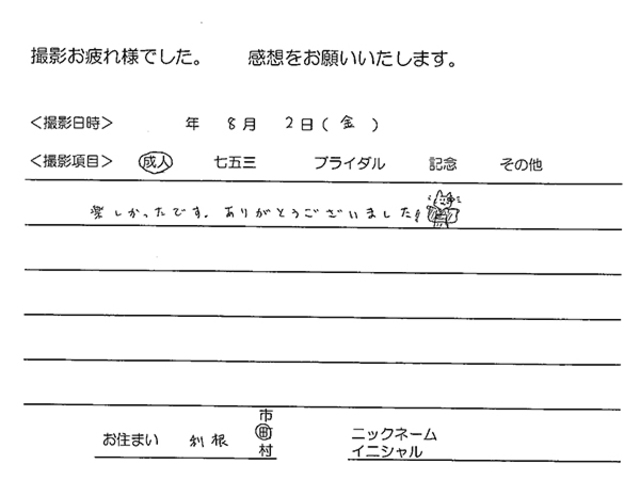 撮影お疲れ様でした。 感想をお願いいたします。
<撮影日時> 年 8月 2日(金)
<撮影項目> 成人 七五三 ブライダル 記念 その他
楽しかったです。ありがとうございました!
お住まい 利根 市 町 村
ニックネーム
イニシャル